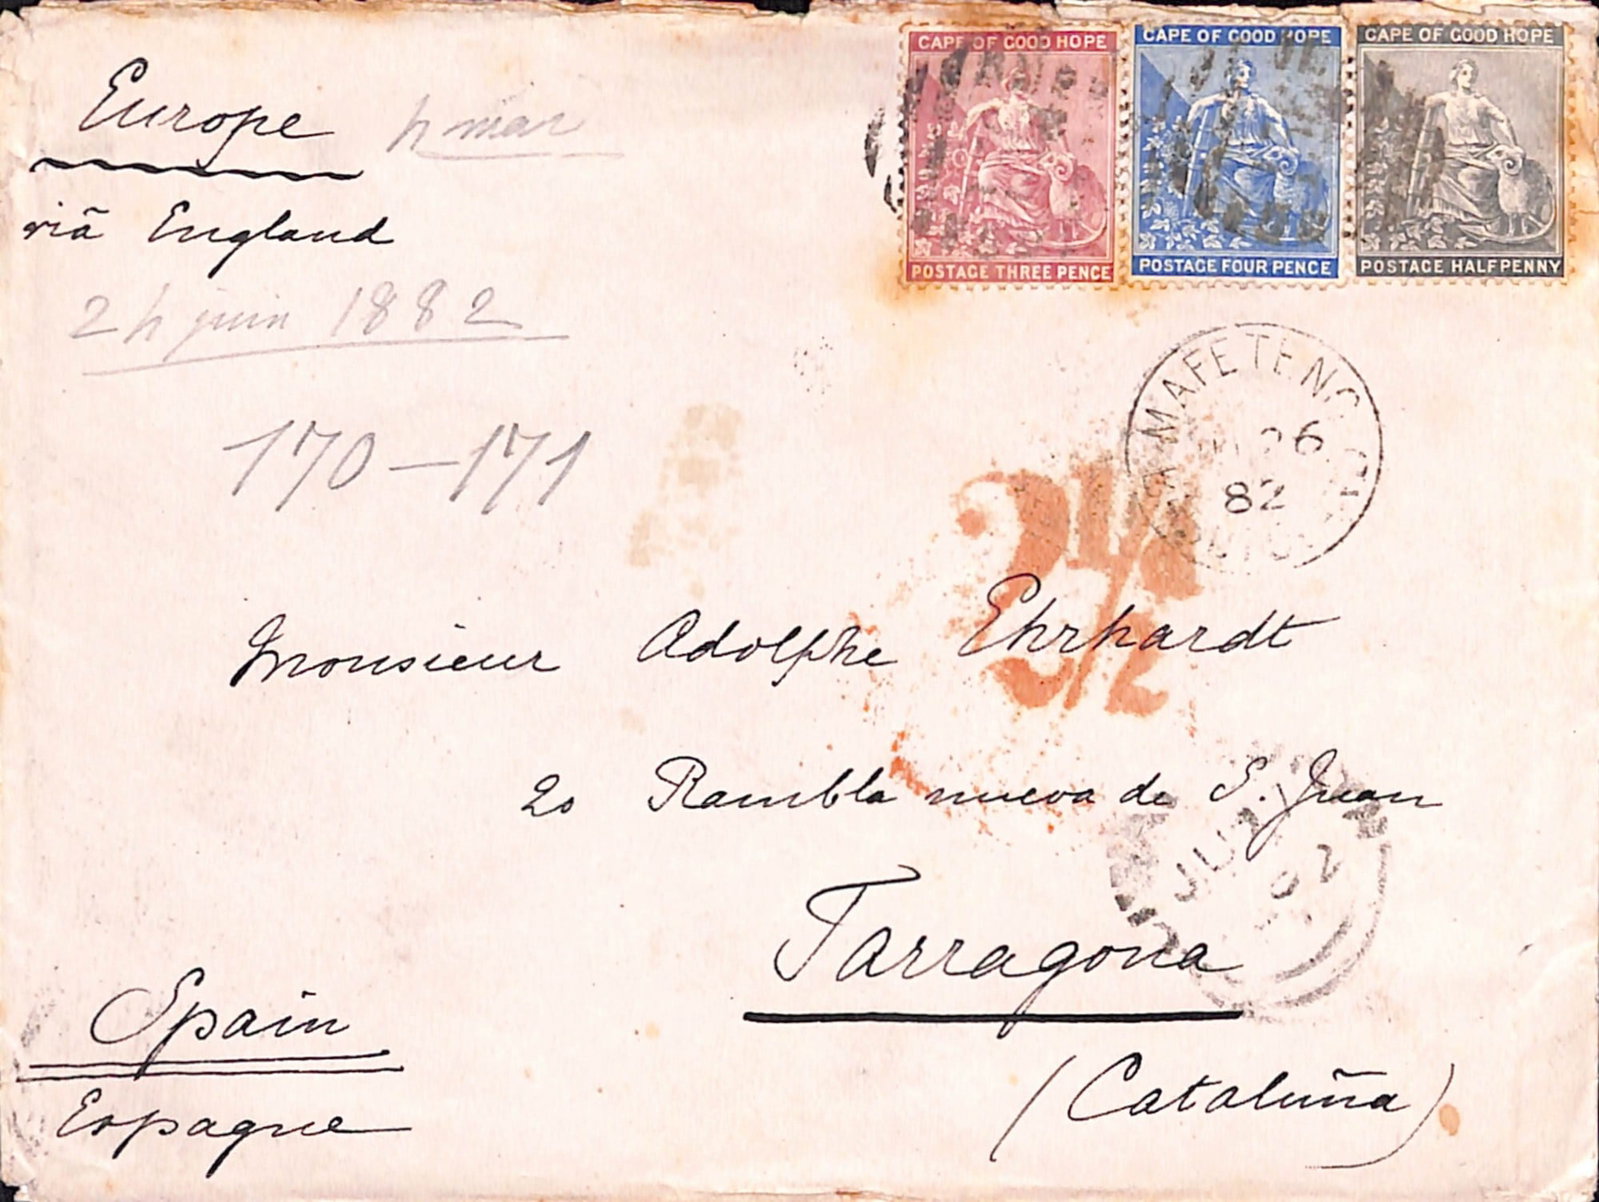 CAPE OF GOOD HOPE
POSTAGE THREE PENCE
CAPE OF GOOD HOPE
POSTAGE FOUR PENCE
CAPE OF GOOD HOPE
POSTAGE HALFPENNY
Europe
viã England
juin 1882
170-171
MAFETENG
26
82
2 1/2
Monsieur Adolphe Ehrhardt
20 Rambla nueva de S. Juan
Tarragona
(Cataluña)
Spain
Espagne